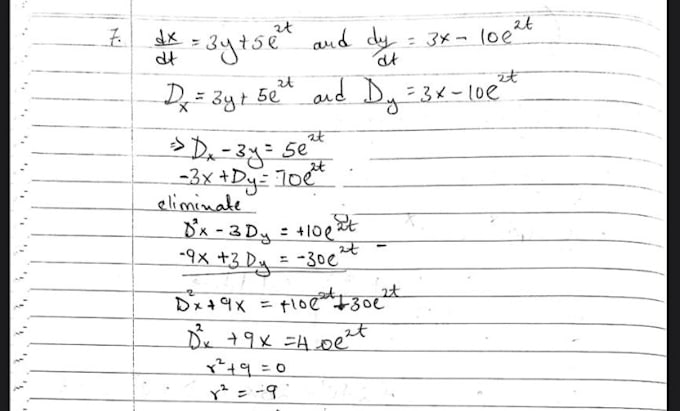 7. dx/dt = 3y+5e^2t and dy/dt = 3x - 10e^2t
Dx = 3y + 5e^2t and Dy = 3x - 10e^2t
⇒ Dx - 3y = 5e^2t
-3x + Dy = 70e^2t
eliminate
D²x - 3Dy = +10e^2t
-9x + 3Dy = -30e^2t -
D²x + 9x = +10e^2t + 30e^2t
D²x + 9x = 40e^2t
r² + 9 = 0
r² = -9